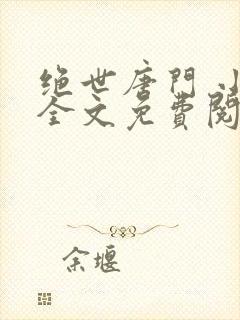 绝世唐門小
全文免費閱
余堰